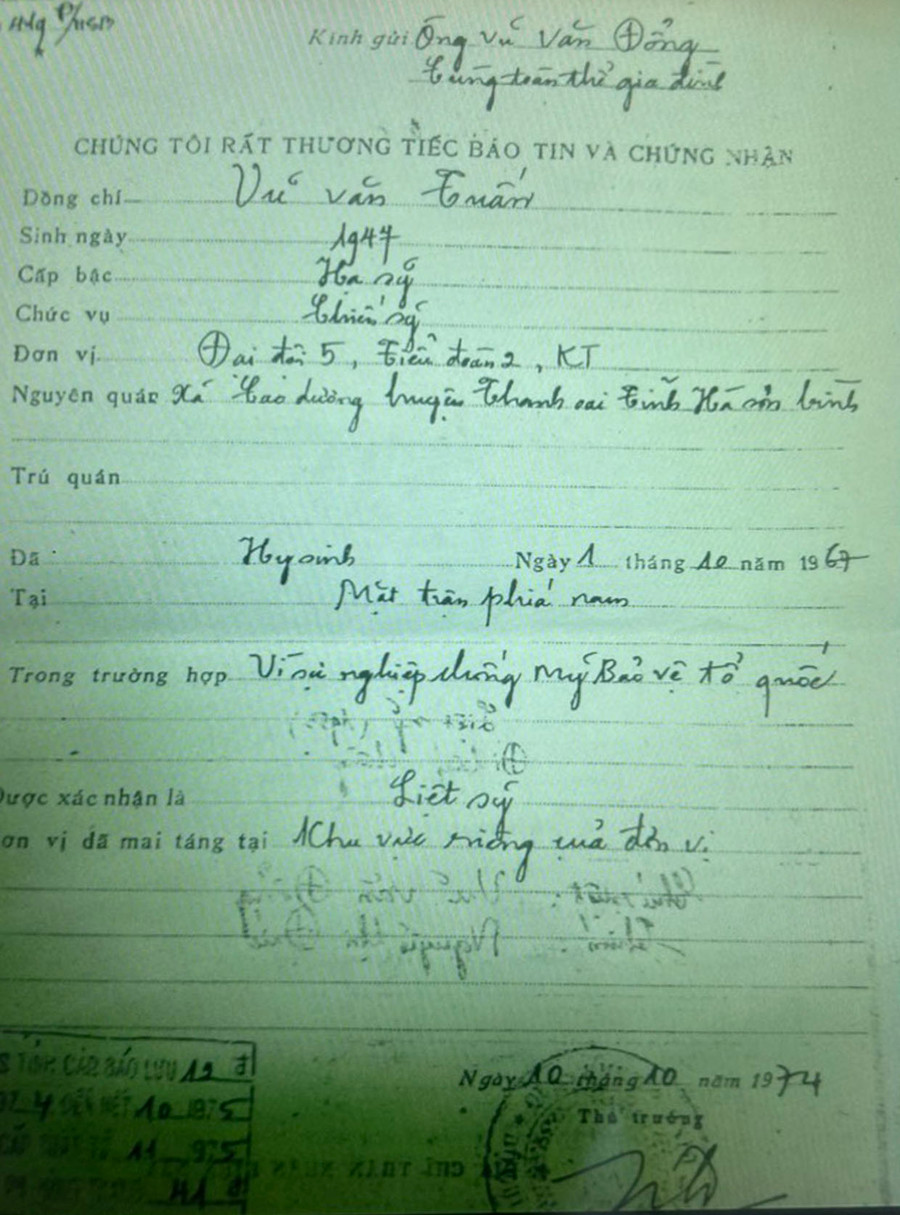 Kính gửi Ông Vũ Văn Đồng
Cùng toàn thể gia đình
CHÚNG TÔI RẤT THƯƠNG TIẾC BÁO TIN VÀ CHỨNG NHẬN
Đồng chí Vũ Văn Tuấn
Sinh ngày 1947
Cấp bậc Hạ sỹ
Chức vụ Chiến sỹ
Đơn vị Đại đội 5, Tiểu đoàn 2, KT
Nguyên quán Xã Cao dương huyện Thanh oai Tỉnh Hà sơn bình
Trú quán
Đã Hy sinh Ngày 1 tháng 10 năm 1967
Tại Mặt trận phía nam
Trong trường hợp Vì sự nghiệp chống Mỹ Bảo vệ tổ quốc
Được xác nhận là Liệt sỹ
ơn vị đã mai táng tại Khu vực riêng của đơn vị
CẤP BÁO LƯU 12 đ
Ngày 10 tháng 10 năm 1974
ĐẾN HẾT 10 1975
Thủ trưởng
11 975